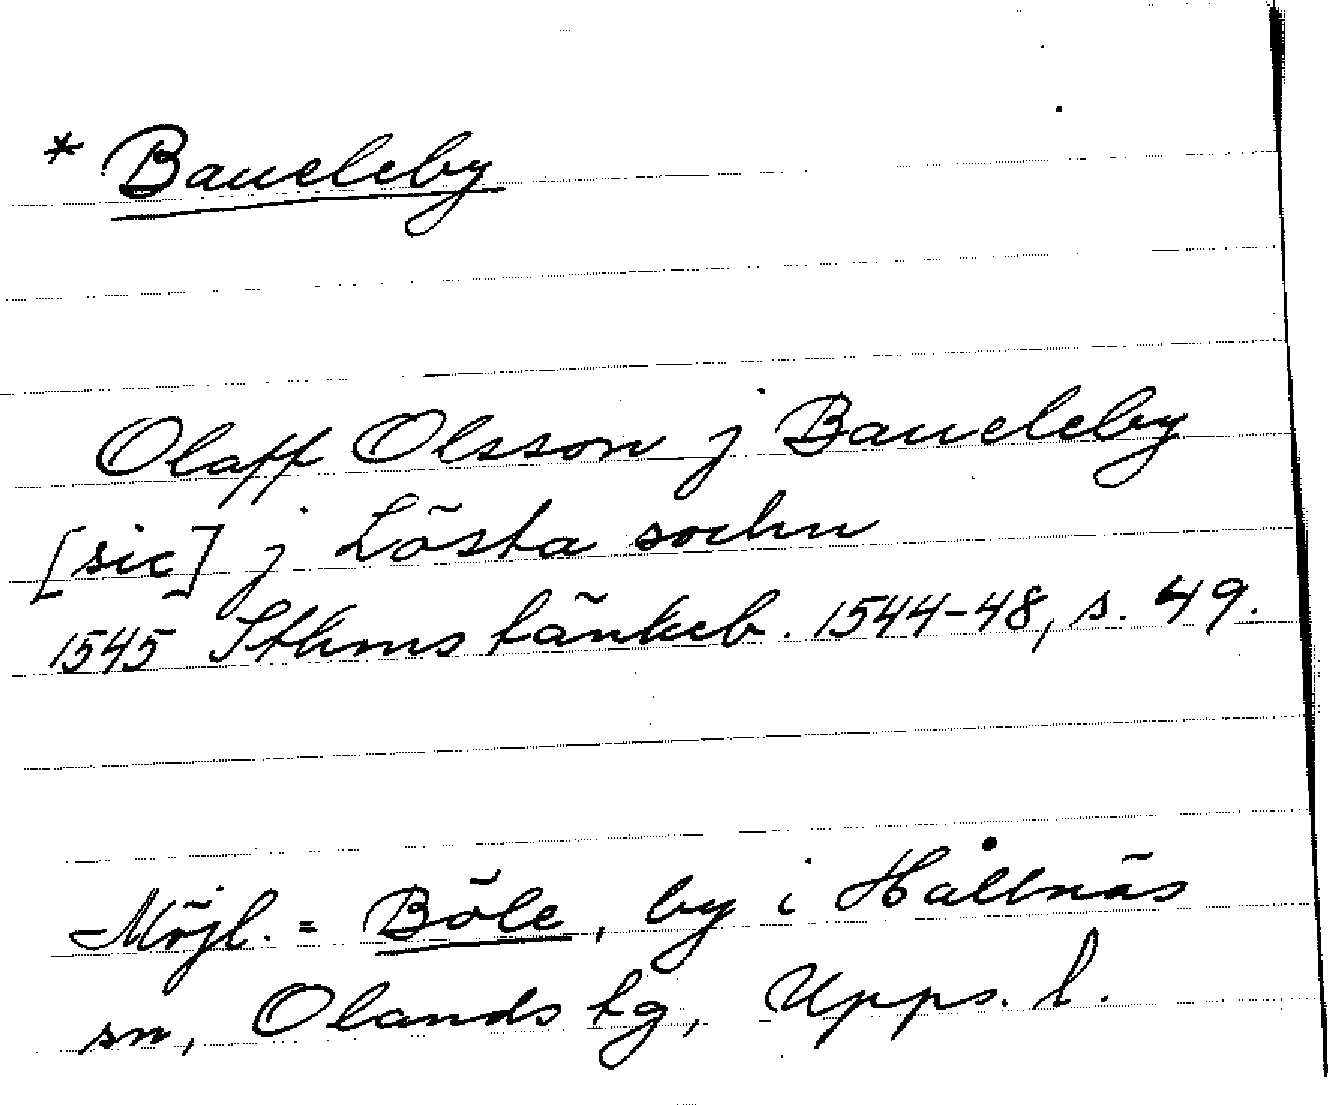 * Baueleby
Olaff Olsson j Baueleby
[sic] j Lösta sochn
1545 Sthms tänkeb. 1544-48, s. 49.
Möjl. = Böle, by i Hållnäs
sn, Olands hg, Upps. l.